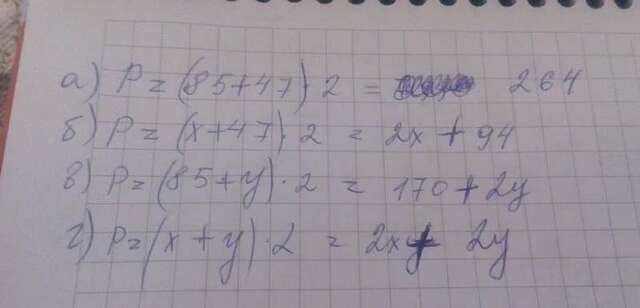 а) P = (85+47)·2 = 264
б) P = (x+47)·2 = 2x + 94
в) P = (85+y)·2 = 170 + 2y
г) P = (x+y)·2 = 2x + 2y